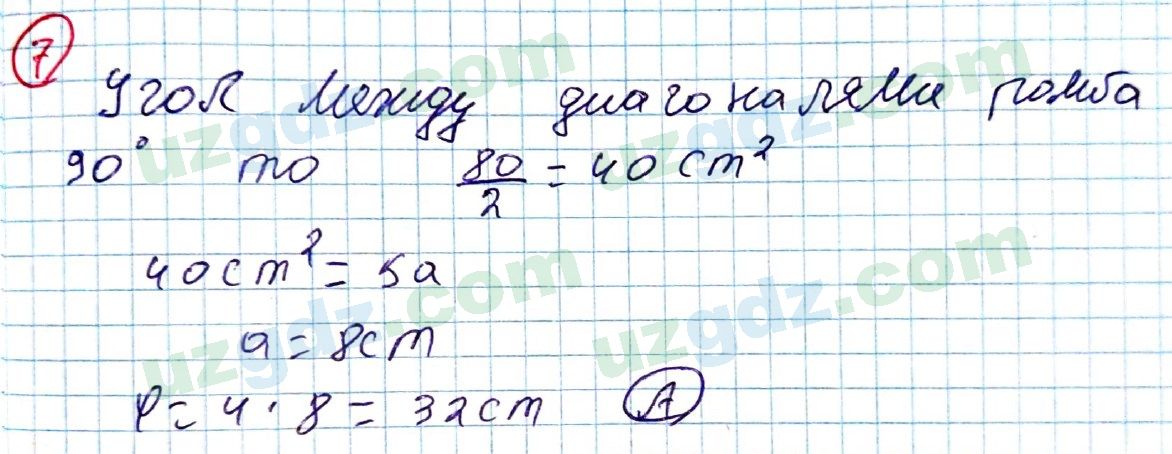 7
Угол между диагоналями ромба
90° то 80/2 = 40 cm²
40 cm² = 5a
a = 8cm
P = 4 · 8 = 32cm A
uzgdz.com
uzgdz.com
uzgdz.com
uzgdz.com